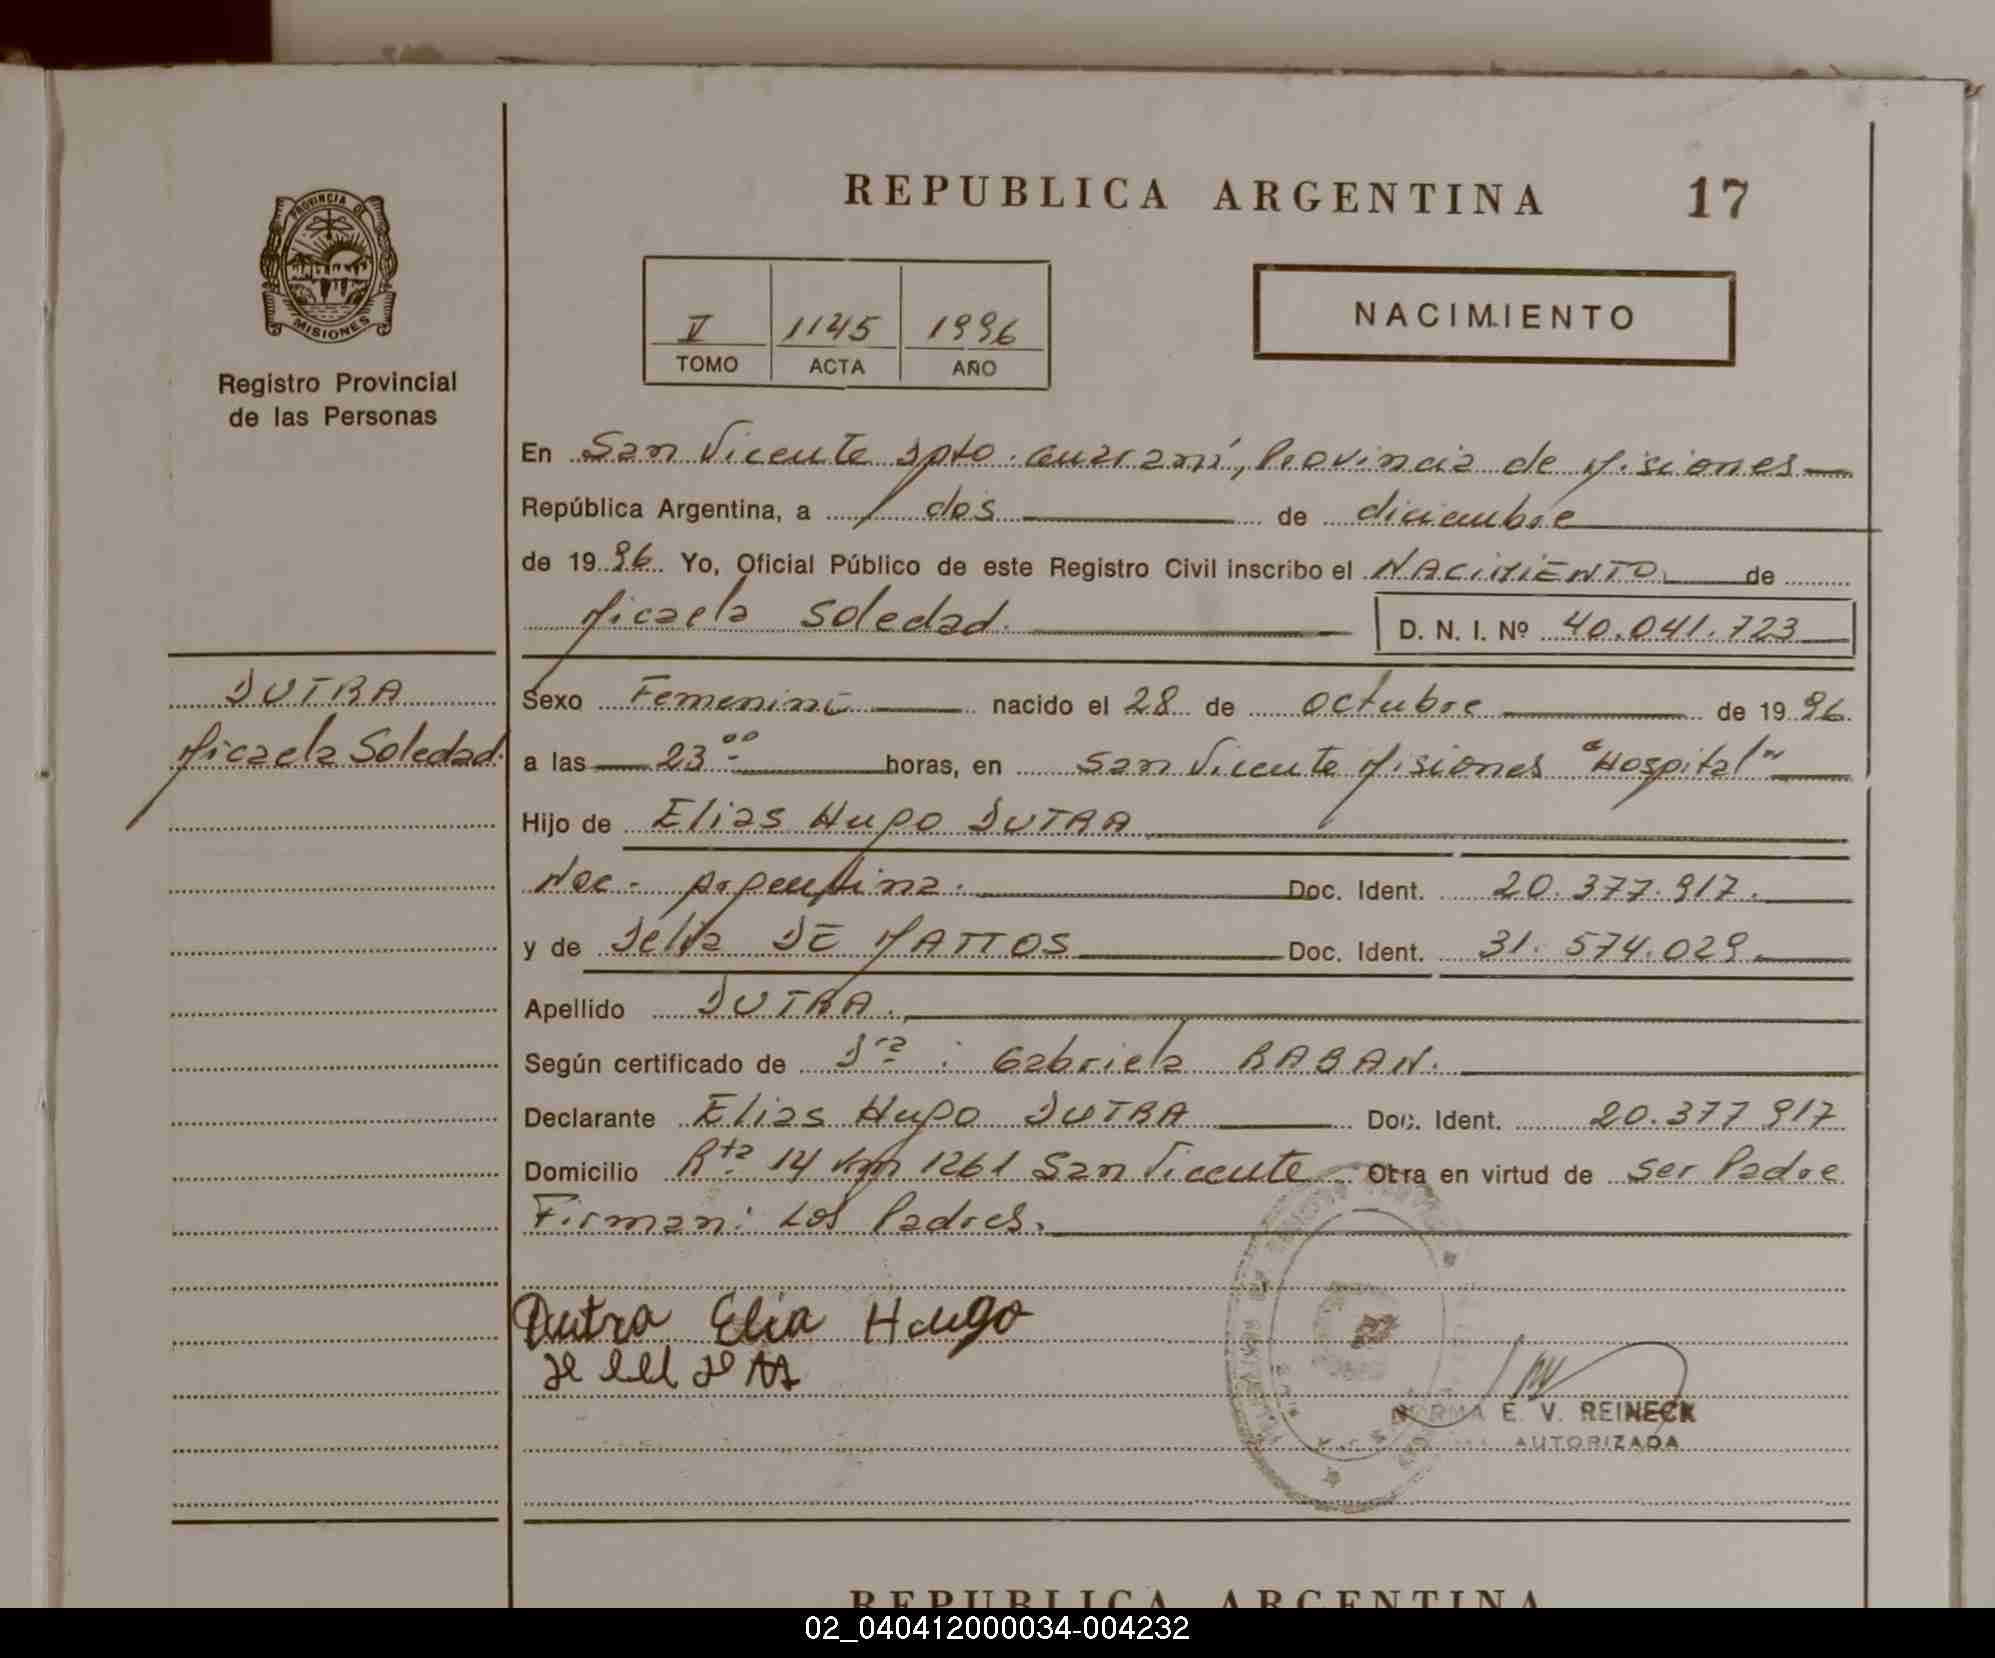 REPUBLICA ARGENTINA 17
PROVINCIA DE
MISIONES
Registro Provincial
de las Personas
V 1145 1996
TOMO ACTA AÑO
NACIMIENTO
En San Vicente Dpto. Guaraní, Provincia de Misiones
República Argentina, a dos de diciembre
de 1996 Yo, Oficial Público de este Registro Civil inscribo el NACIMIENTO de
Micaela Soledad. D. N. I. Nº 40.041.723
DUTRA
Micaela Soledad.
Sexo Femenino nacido el 28 de octubre de 1996
a las 23 00 horas, en San Vicente Misiones "Hospital"
Hijo de Elias Hugo DUTRA
Nac. Argentina. Doc. Ident. 20.377.917.
y de Delia DE MATTOS Doc. Ident. 31.574.029
Apellido DUTRA.
Según certificado de Dra: Gabriela RABAN.
Declarante Elias Hugo DUTRA Doc. Ident. 20.377 917
Domicilio Rta 14 km 1261 San Vicente Obra en virtud de ser Padre
Firman: Los Padres.
Dutra Elia Hugo
NORMA E. V. REINECK
AUTORIZADA
REPUBLICA ARGENTINA
02_040412000034-004232